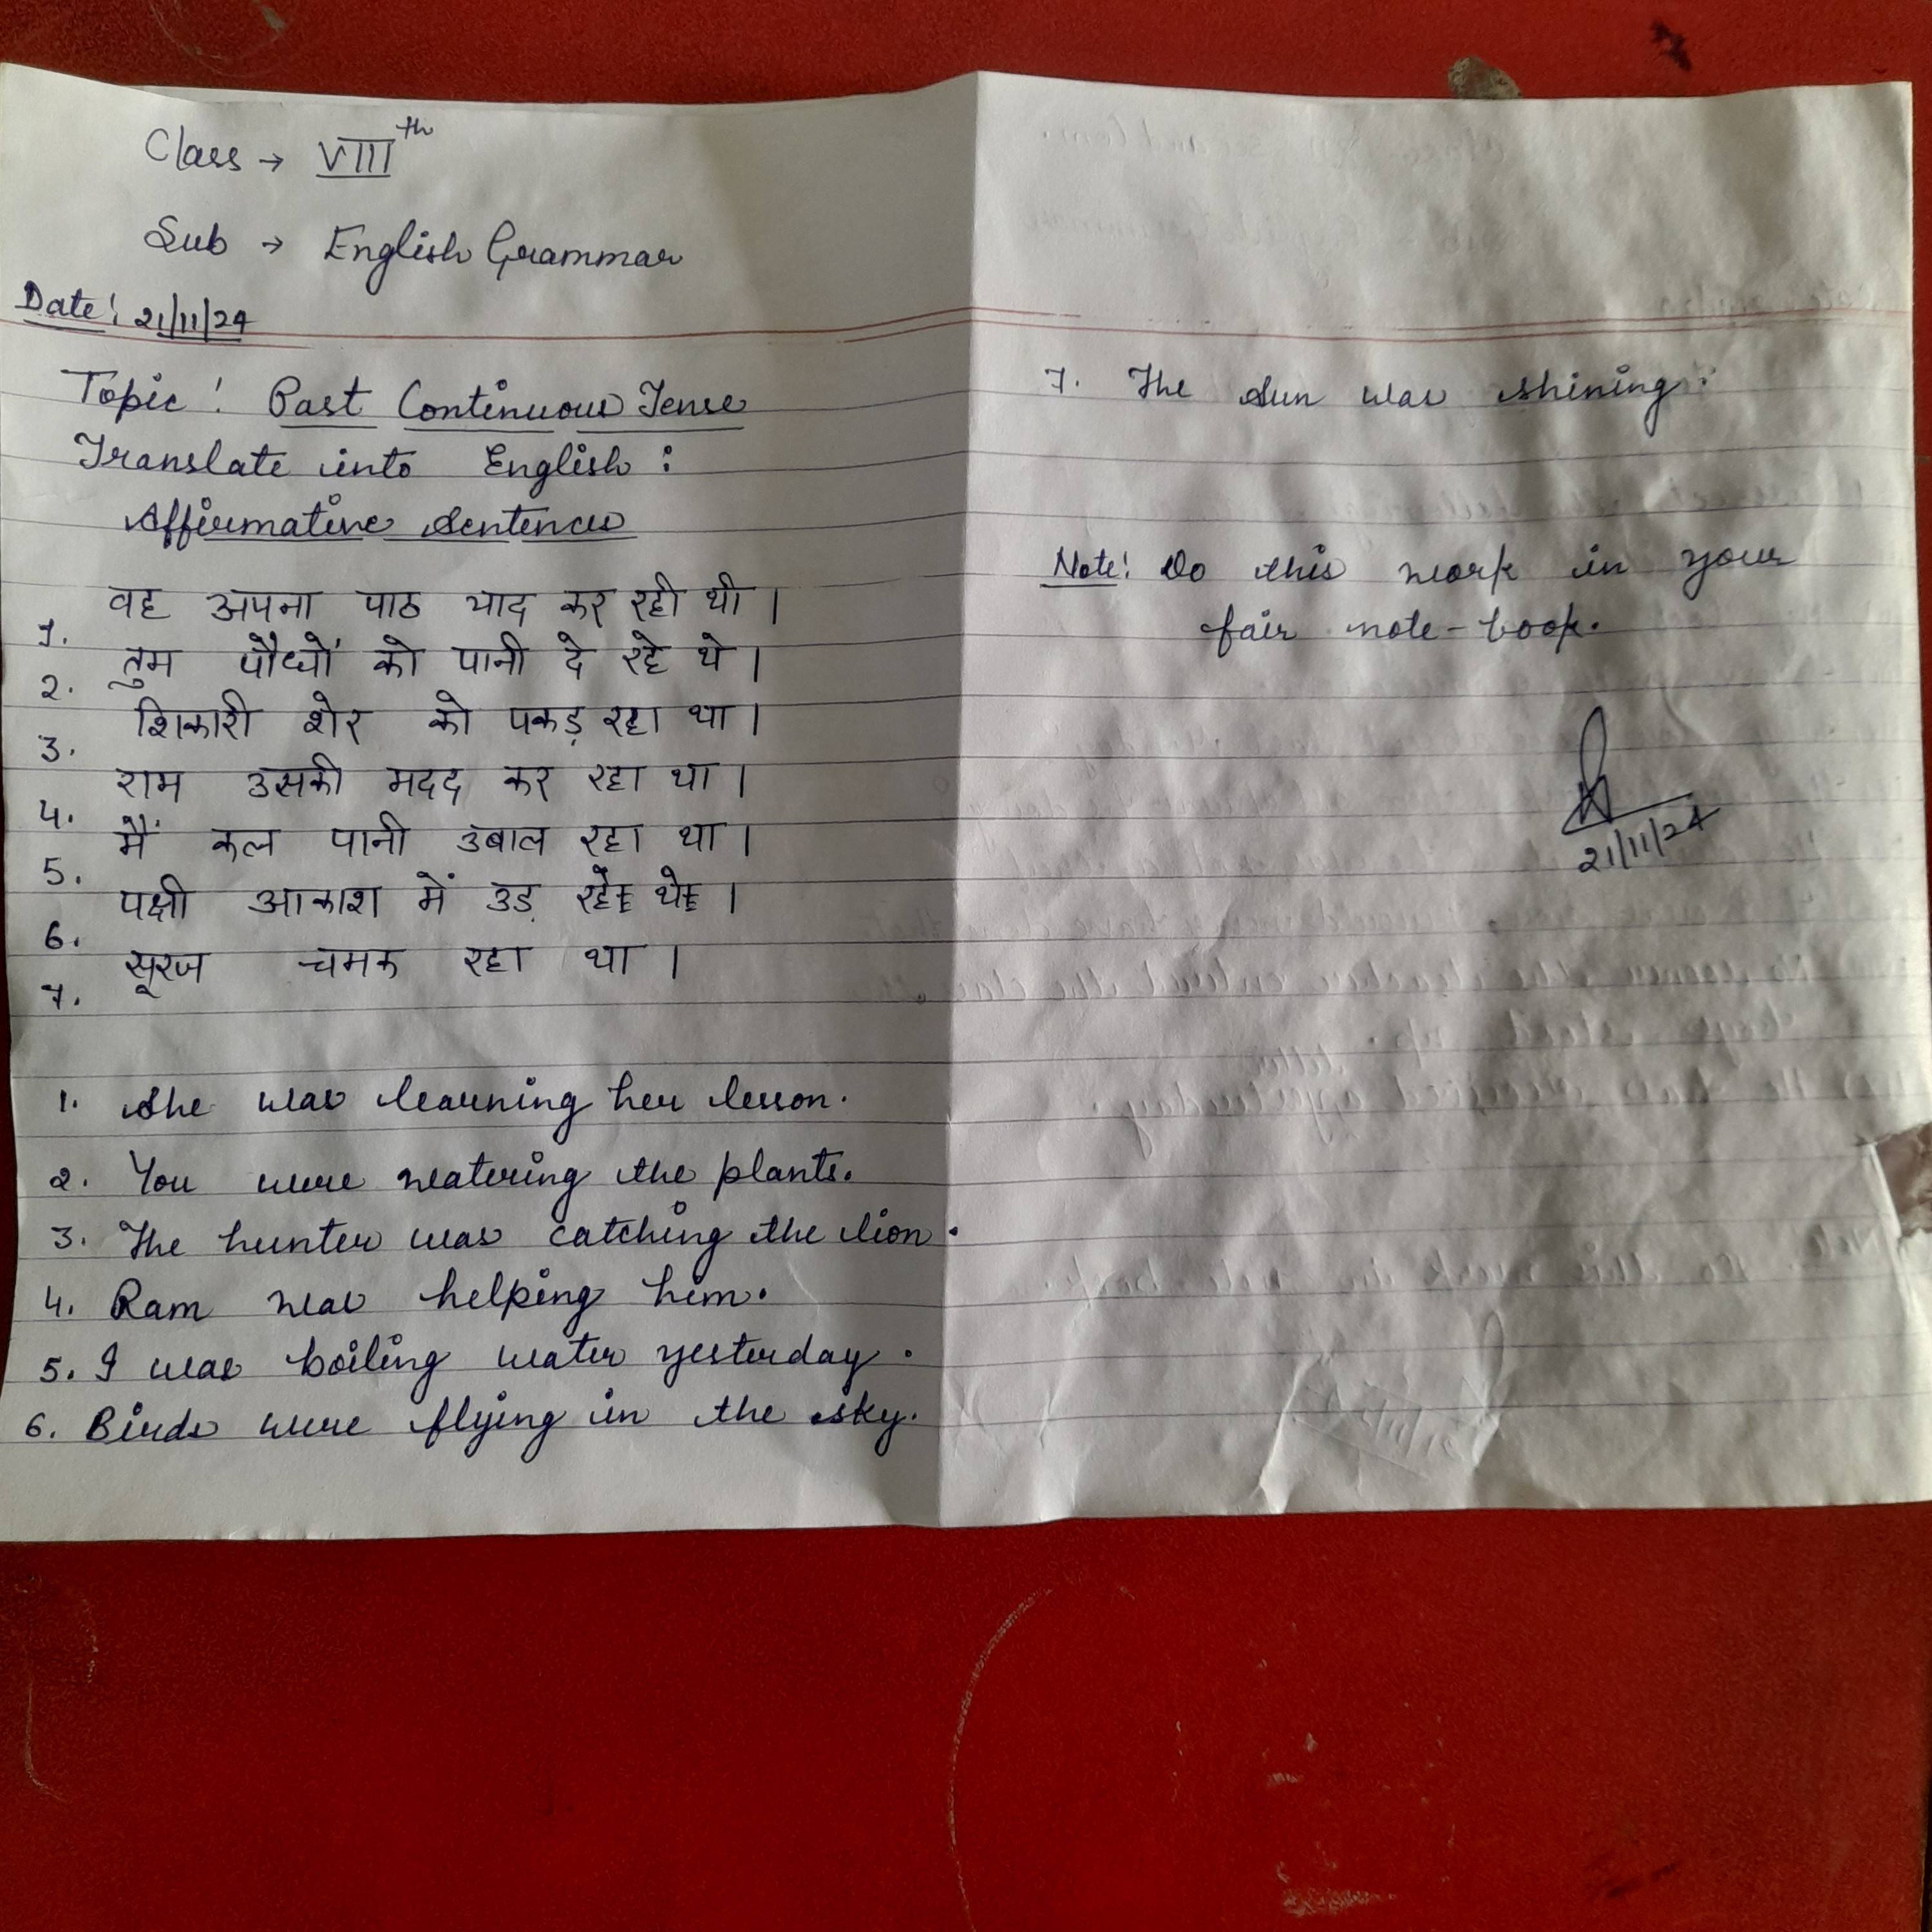 Class → VIII th
Sub → English Grammar
Date: 21/11/24
Topic: Past Continuous Tense
Translate into English:
Affirmative Sentences
1. वह अपना पाठ याद कर रही थी।
2. तुम पौधों को पानी दे रहे थे।
3. शिकारी शेर को पकड़ रहा था।
4. राम उसकी मदद कर रहा था।
5. मैं कल पानी उबाल रहा था।
6. पक्षी आकाश में उड़ रहे थे।
7. सूरज चमक रहा था।
1. She was learning her lesson.
2. You were watering the plants.
3. The hunter was catching the lion.
4. Ram was helping him.
5. I was boiling water yesterday.
6. Birds were flying in the sky.
7. The sun was shining.
Note: Do this work in your
fair note-book.
21/11/24